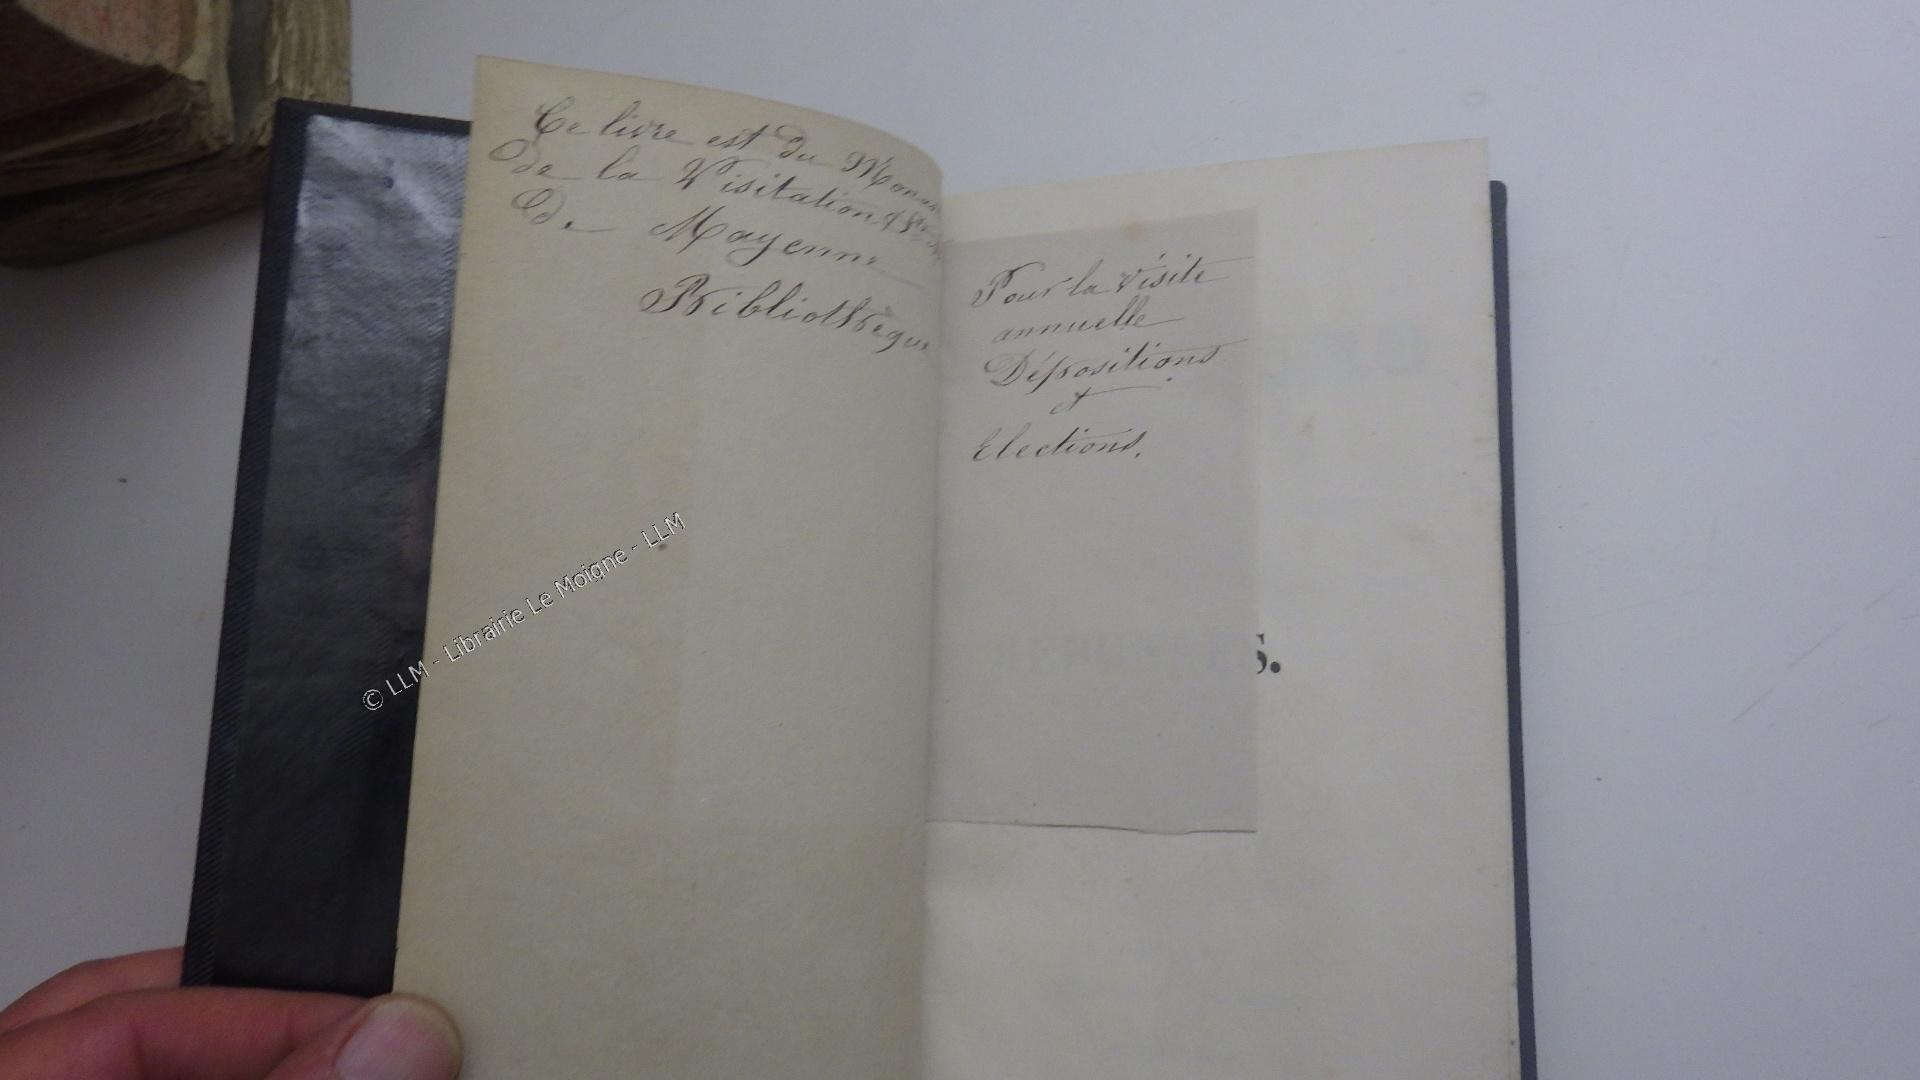 Ce livre est du Monas
de la Visitation Ste
De Mayenne
Bibliothèque
Pour la visite
annuelle
Dépositions
et
Elections.
S.
© LLM - Librairie Le Moigne - LLM